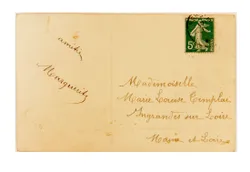 amitiés
Marguerite
Mademoiselle
Marie Louise Templier
Ingrandes sur Loire
Maine et Loire
5